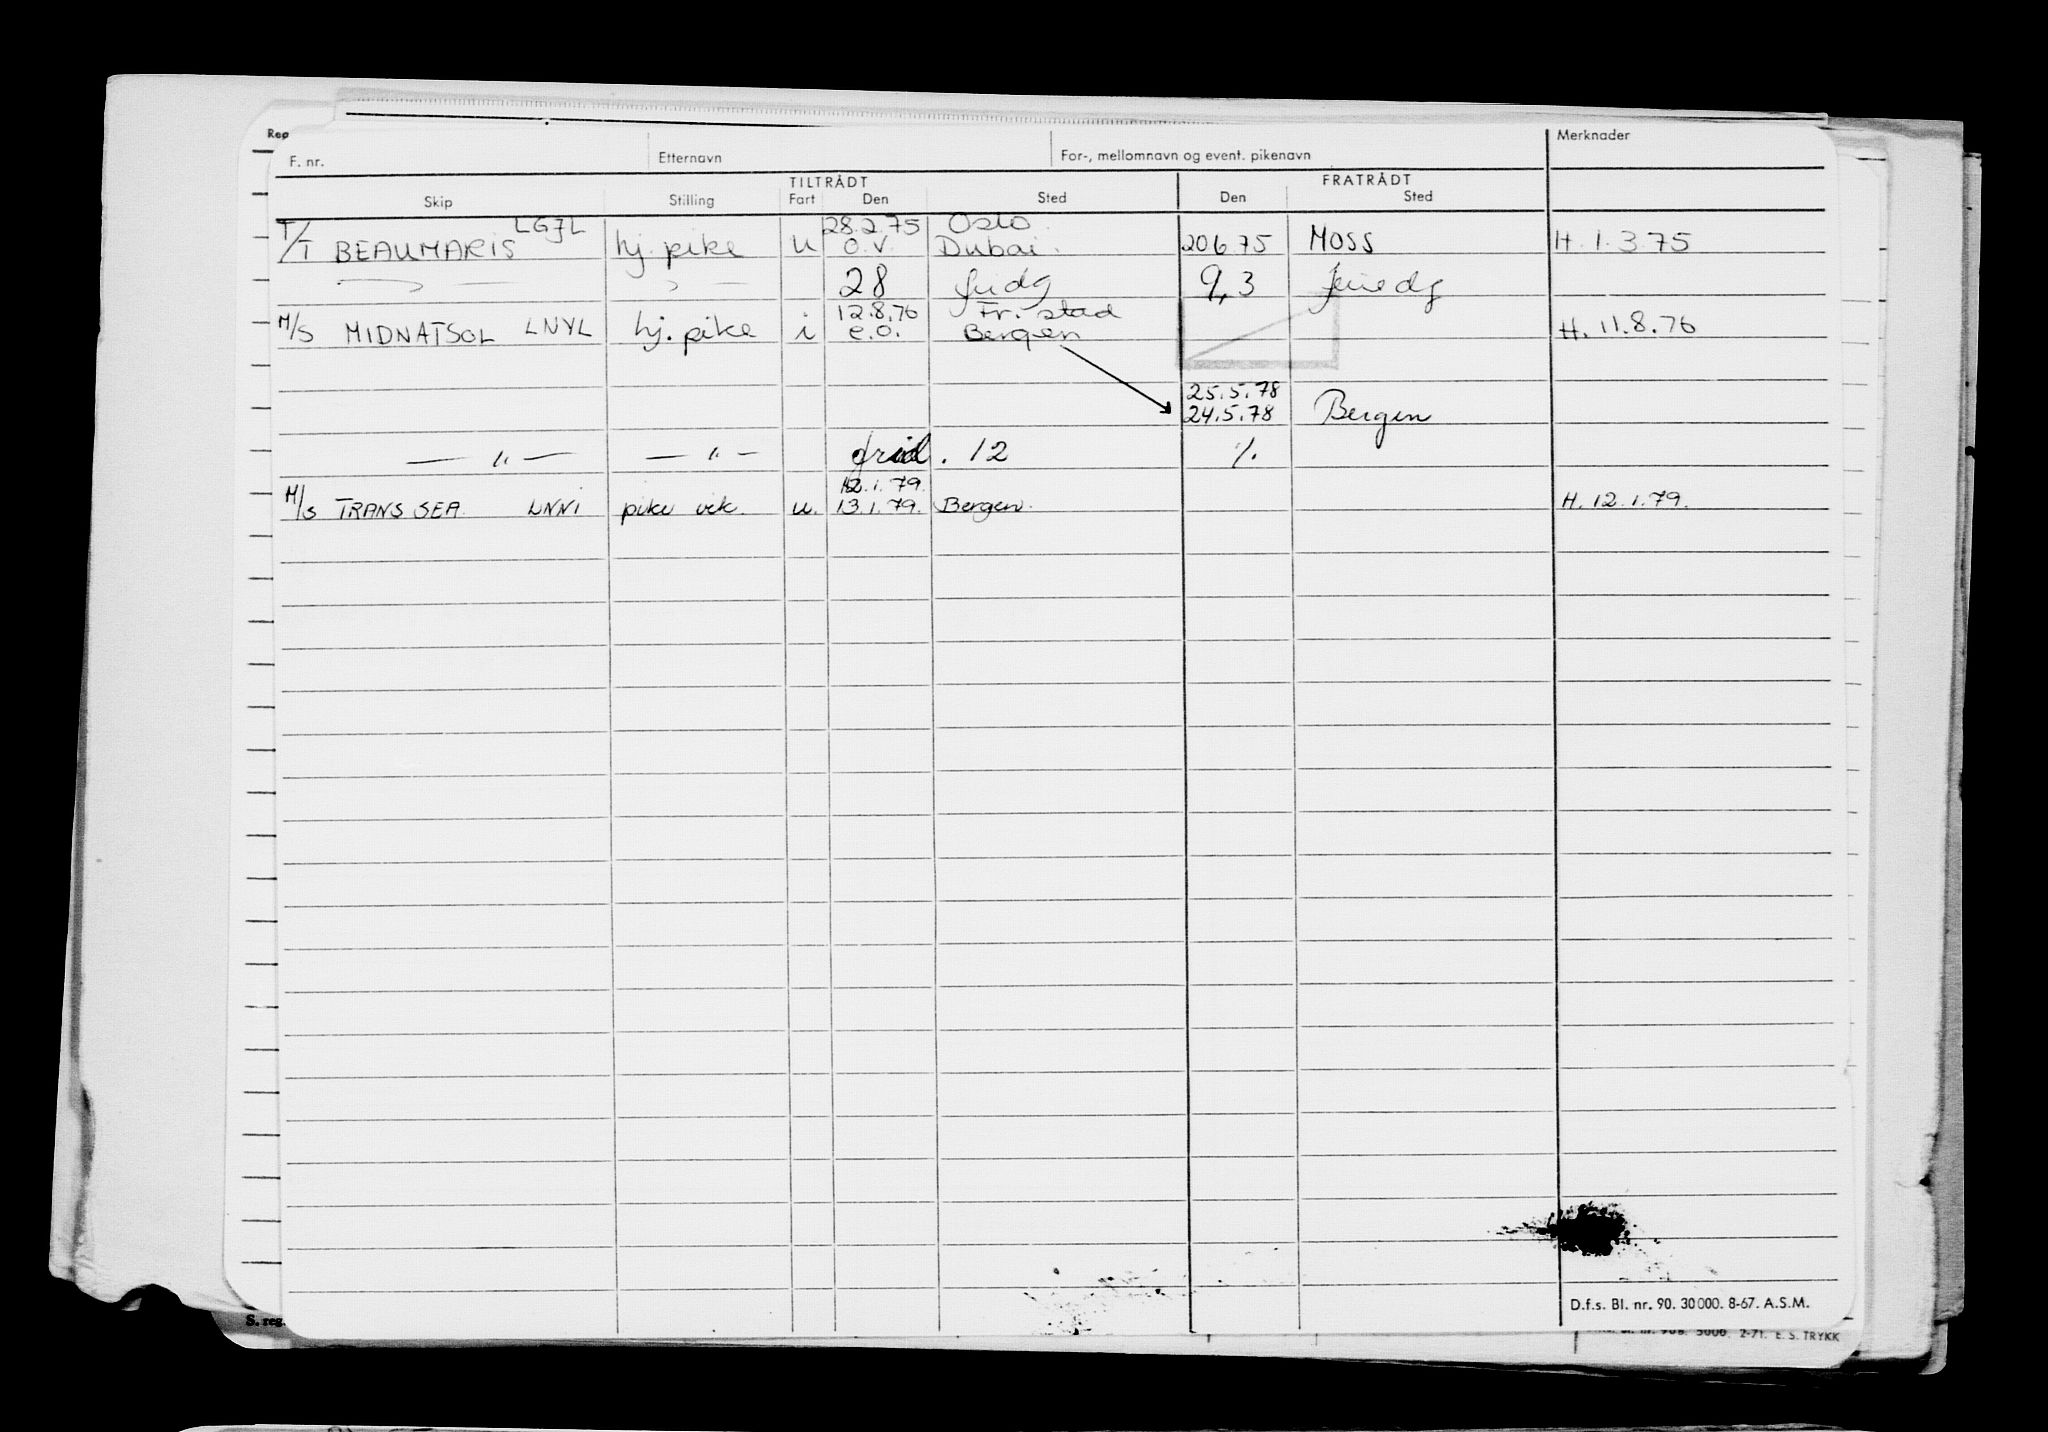 Reg
F. nr. Etternavn For-, mellomnavn og event. pikenavn Merknader
TILTRÅDT FRATRÅDT
Skip Stilling Fart Den Sted Den Sted
LGJL 28.2.75 Oslo
T/T BEAUMARIS hj. pike u O.V. Dubai. 20.6.75 MOSS H. 1.3.75
28 9,3
12.8.76 Fr. stad
M/S MIDNATSOL LNYL hj. pike i e.o. Bergen H. 11.8.76
25.5.78
24.5.78 Bergen
— " — — " — frid. 12 %
12.1.79.
M/S TRANS SEA. LNNI pike vik. u. 13.1.79. Bergen. H. 12.1.79.
D.f.s. Bl. nr. 90. 30000. 8-67. A.S.M.
S. reg. 5000. 2-71. E. S. TRYKK